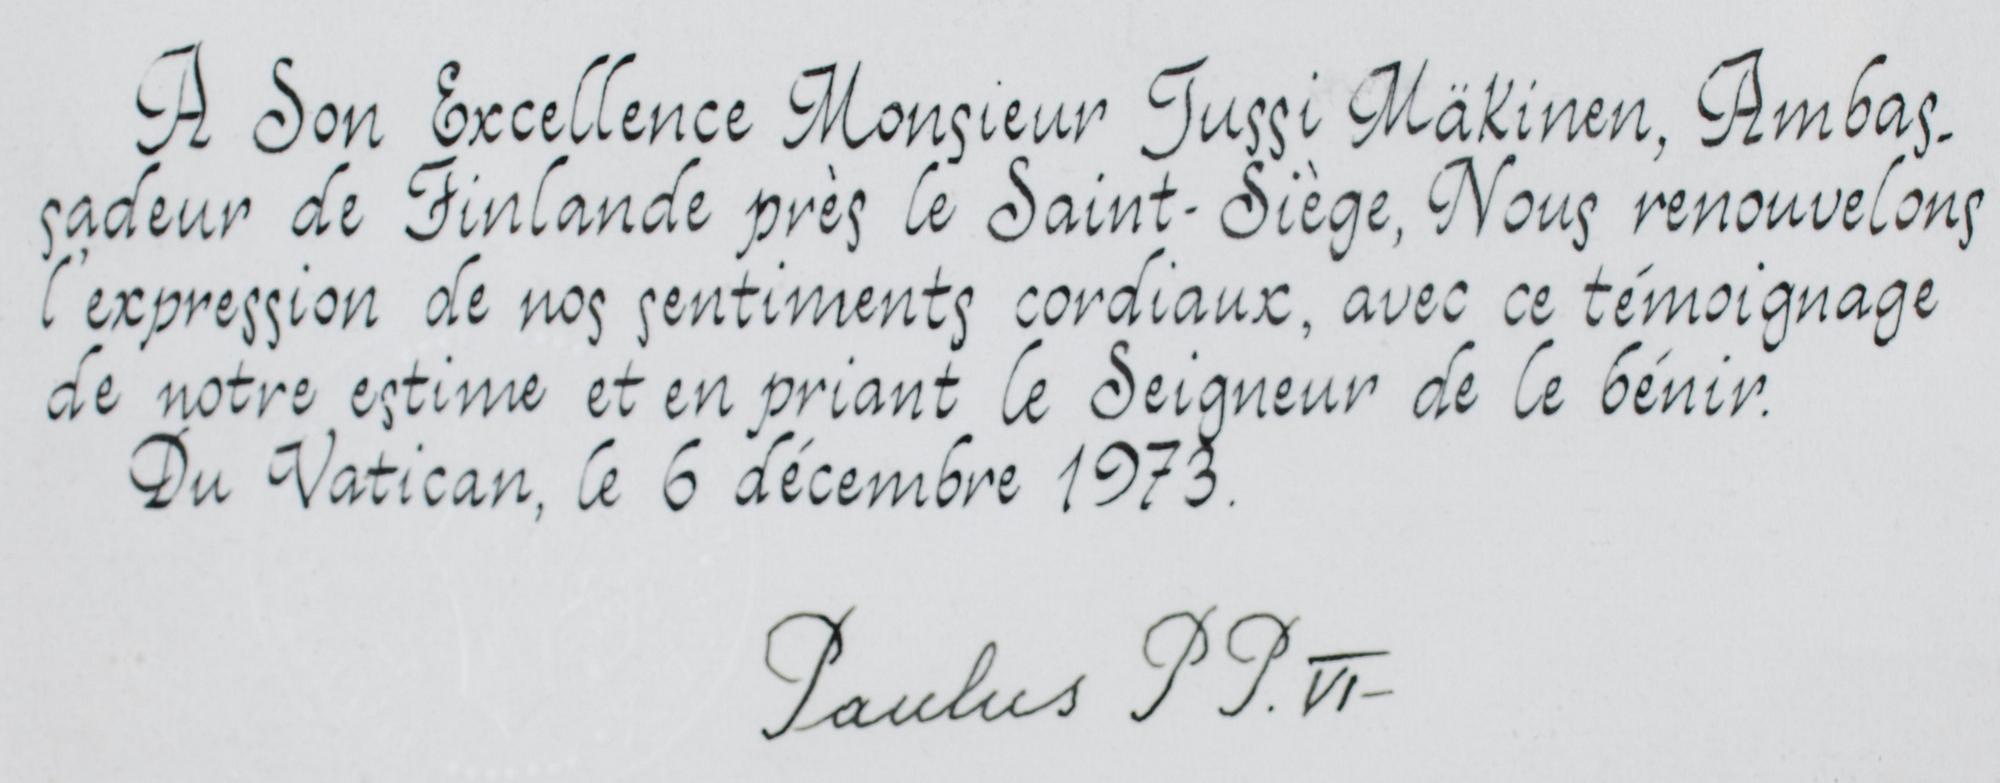 A Son Excellence Monsieur Jussi Mäkinen, Ambas-
sadeur de Finlande près le Saint-Siège, Nous renouvelons
l'expression de nos sentiments cordiaux, avec ce témoignage
de notre estime et en priant le Seigneur de le bénir.
Du Vatican, le 6 décembre 1973.
Paulus PP. VI